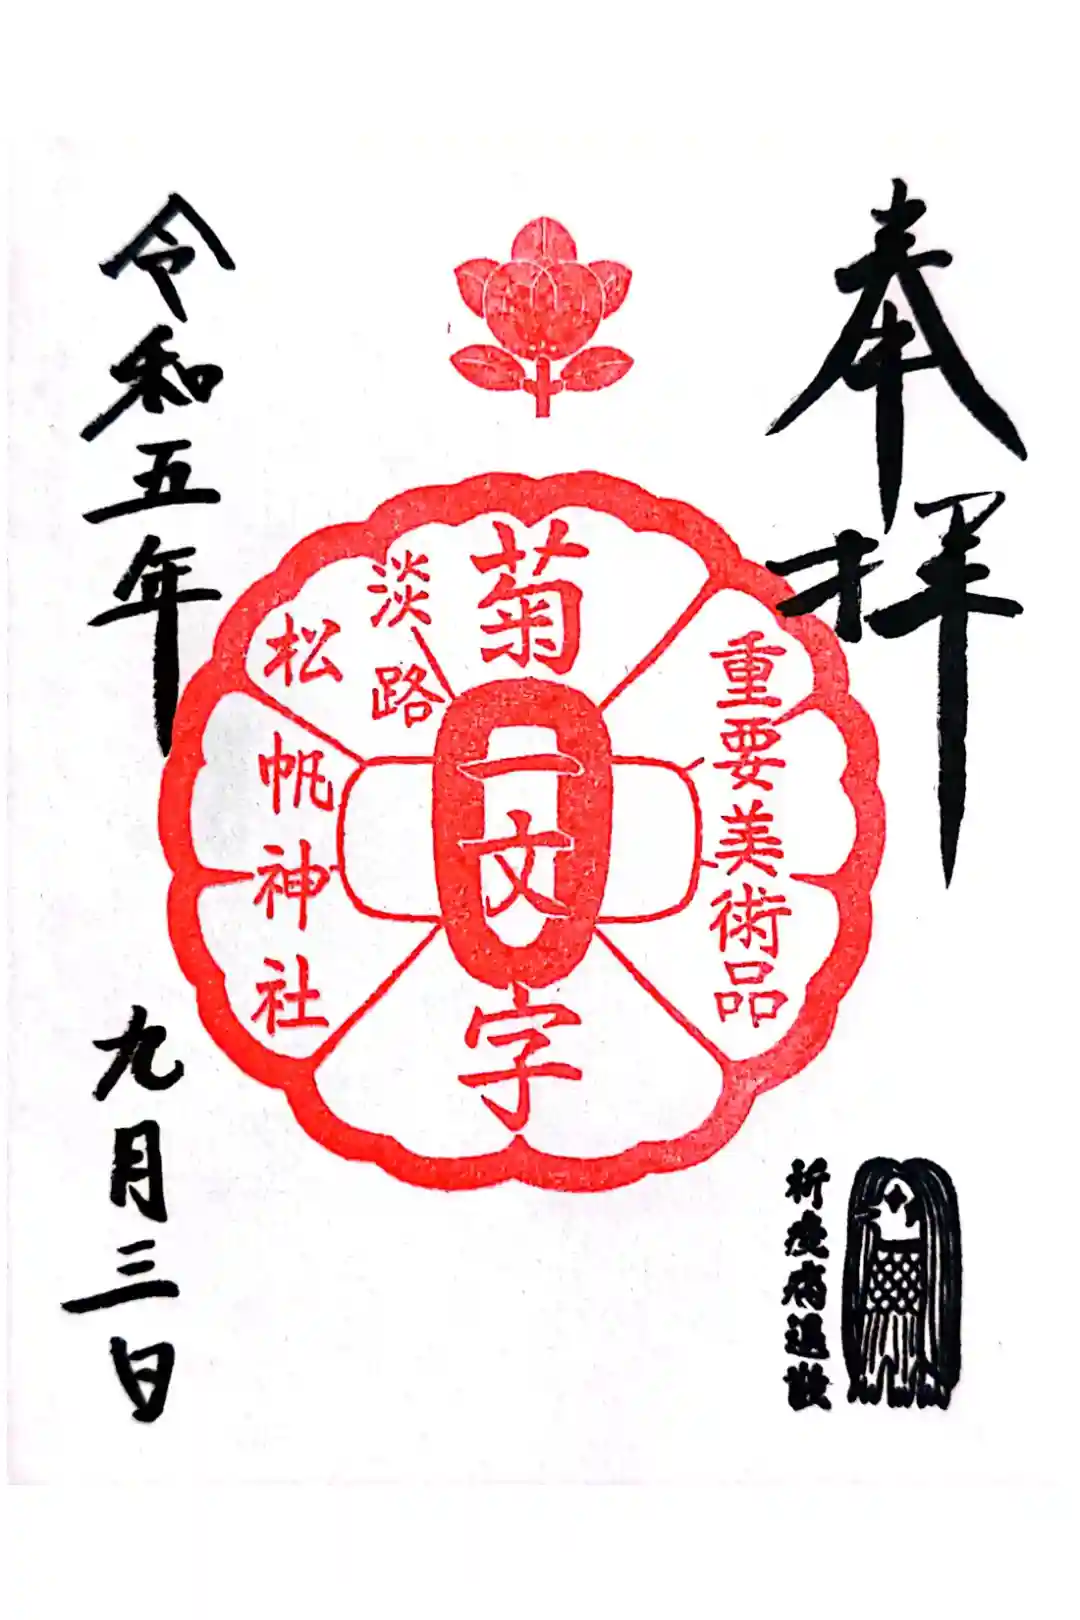 奉拝
重要美術品
菊一文字
淡路
松帆神社
令和五年
九月三日
祈疫病退散